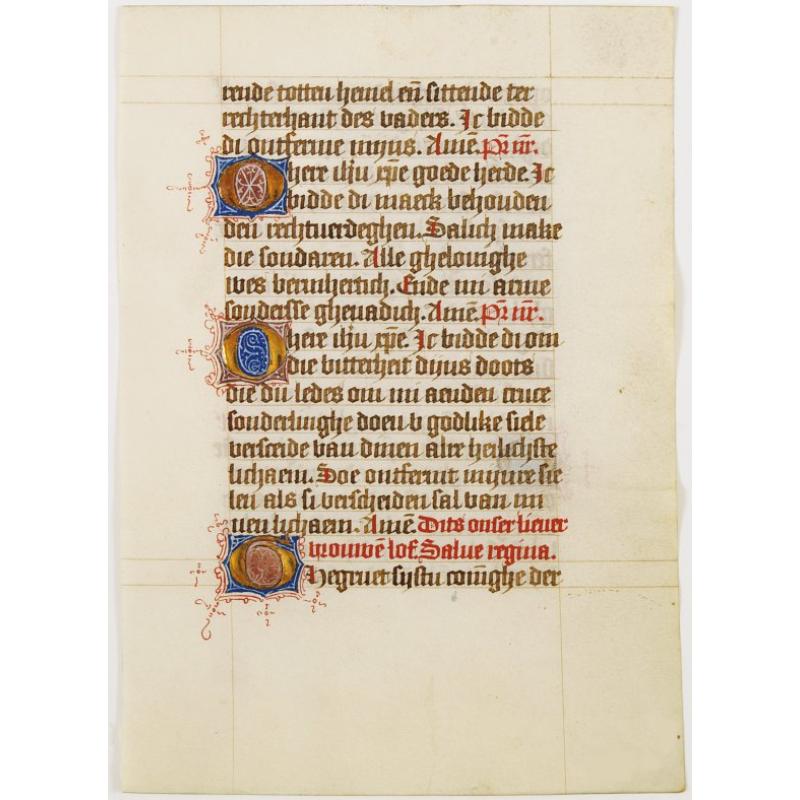 rende totten hemel en̄ sittende ter
rechterhant des vaders. Ic bidde
di ontferme mijns. Amē. Pr̄ nr̄.
O here ihū xp̄e goede herde. Ic
bidde di maeck behouden
den rechtuerdeghen. Salich make
die sondaren. Alle ghelouighe
wes bermhertich. Ende mi arme
sondersse ghenadich. Amē. Pr̄ nr̄.
O here ihū xp̄e. Ic bidde di om
die bitterheit dijns doots
die du ledes om mi aenden cruce
sonderlinghe doen v godlike siele
versceide van dinen alre heilichste
lichaem. Soe ontfermt mijnre sie
len als si verscheiden sal van mi
nen lichaem. Amē. Dits onser lieuer
vrouwē lof. Salue regina.
Ghegruet sijstu conīghe der